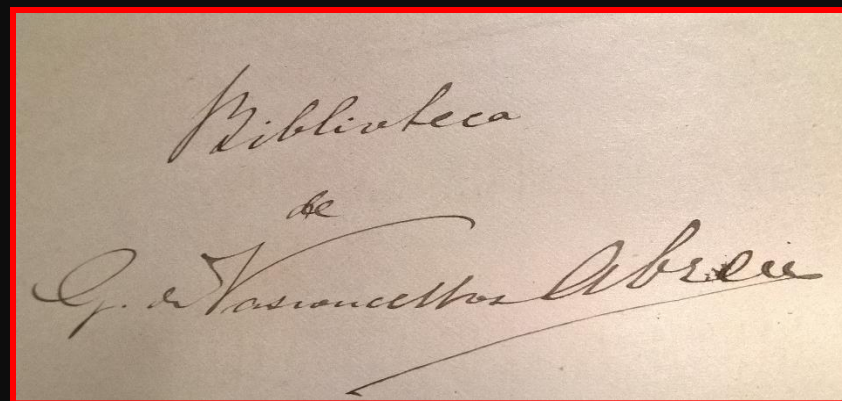 Biblioteca
de
G. de Vasconcellos Abreu